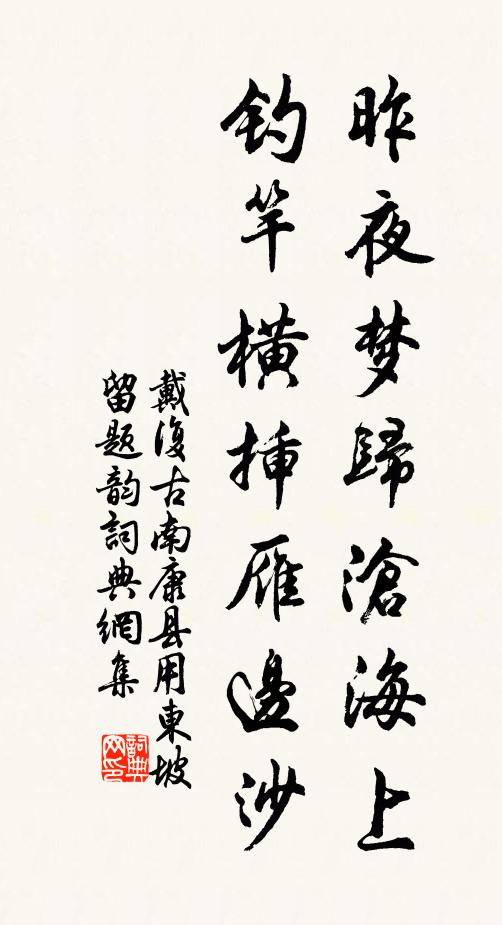 昨夜梦歸滄海上
釣竿橫插雁邊沙
戴復古南康县用東坡
留题韵詞典網集
詞典
网印